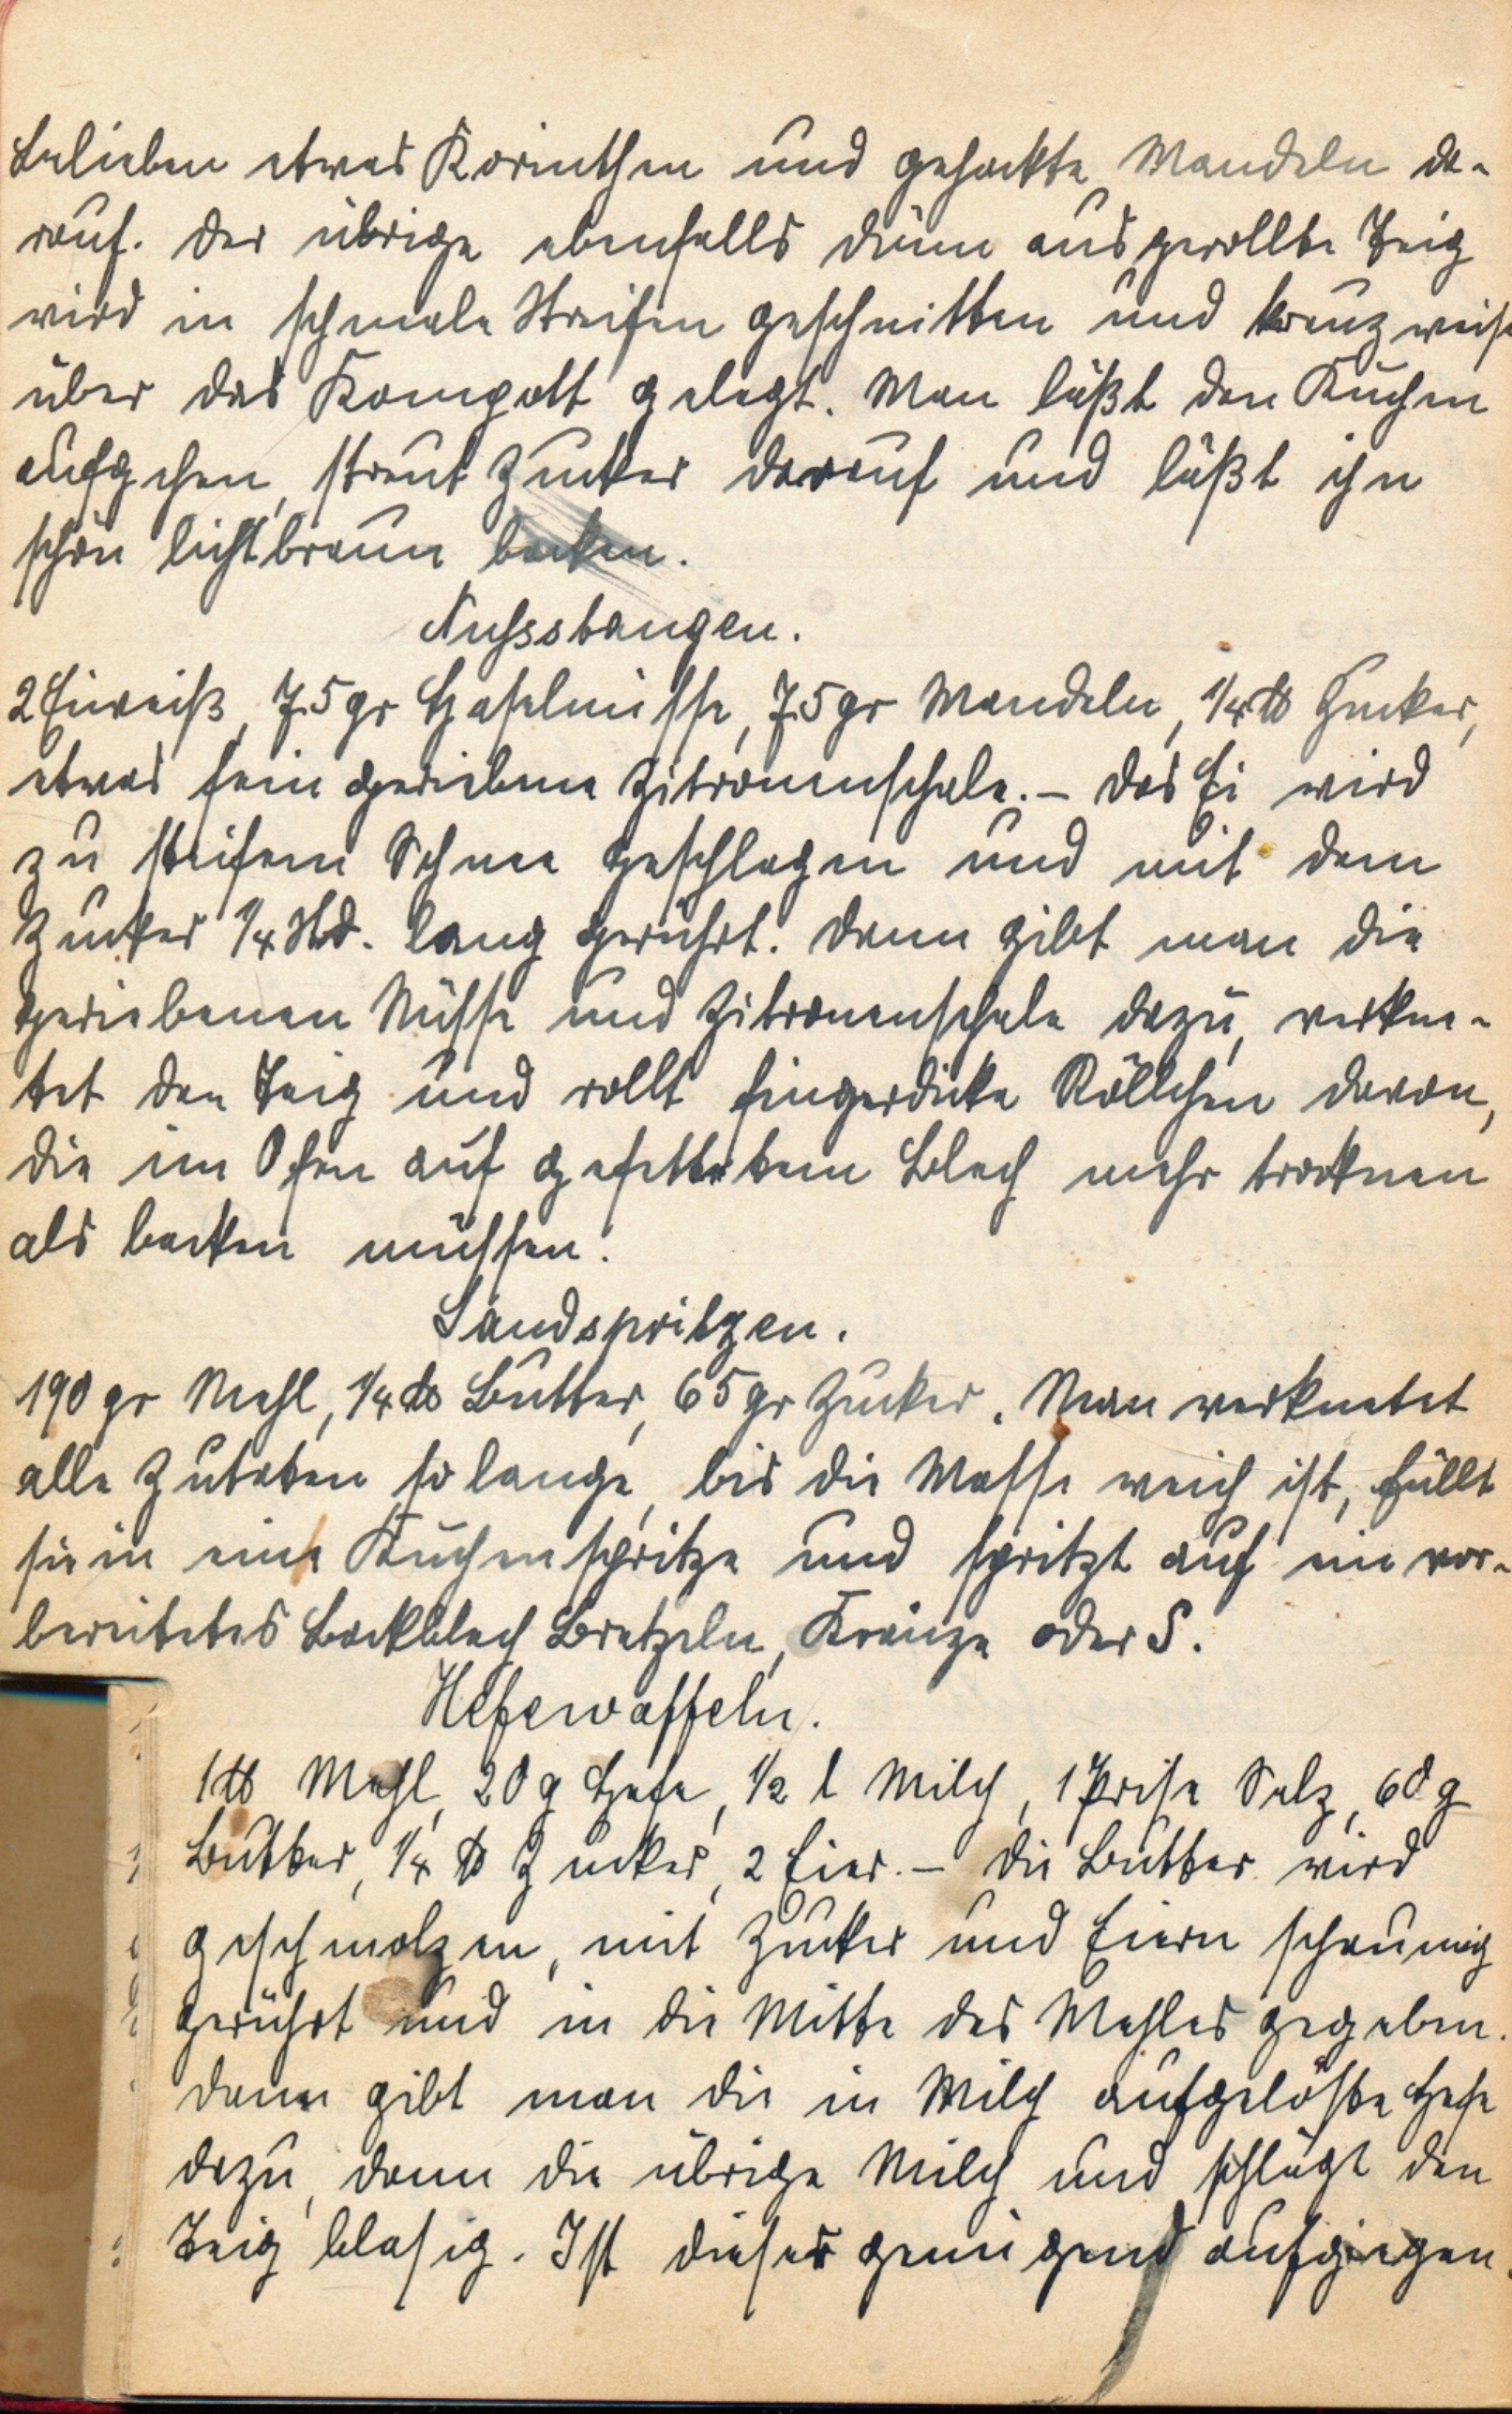 Belieben etwas Korinthen und gehackte Mandeln da-
rauf. Der übrige ebenfalls dünn ausgerollte Teig
wird in schmale Streifen geschnitten und kreuzweise
über das Kompott gelegt. Man läßt den Kuchen
aufgehen, streut Zucker darauf und läßt ihn
schön lichtbraun backen.
Nussstangen.
2 Eiweiß, 75 gr Haselnüsse, 75 gr Mandeln, 1/4 ℔ Zucker,
etwas fein geriebene Zitronenschale. – Das Ei wird
zu steifem Schnee geschlagen und mit dem
Zucker 1/4 Std. lang gerührt. Dann gibt man die
geriebenen Nüsse und Zitronenschale dazu, verkne-
tet den Teig und rollt fingerdicke Röllchen davon,
die im Ofen auf gefettetem Blech mehr trocknen
als backen müssen.
Sandspritzen.
190 gr Mehl, 1/4 ℔ Butter, 65 gr Zucker. Man verknetet
alle Zutaten so lange, bis die Masse weich ist, füllt
sie in eine Kuchenspritze und spritzt auf ein vor-
bereitetes Backblech Bretzeln, Kränze oder S.
Hefewaffeln.
1 ℔ Mehl, 20 g Hefe, 1/2 l Milch, 1 Prise Salz, 60 g
Butter, 1/4 ℔ Zucker, 2 Eier. – Die Butter wird
geschmolzen, mit Zucker und Eiern schaumig
gerührt und in die Mitte des Mehles gegeben.
Dann gibt man die in Milch aufgelöste Hefe
dazu, dann die übrige Milch und schlägt den
Teig blasig. Ist dieser genügend aufgegangen,